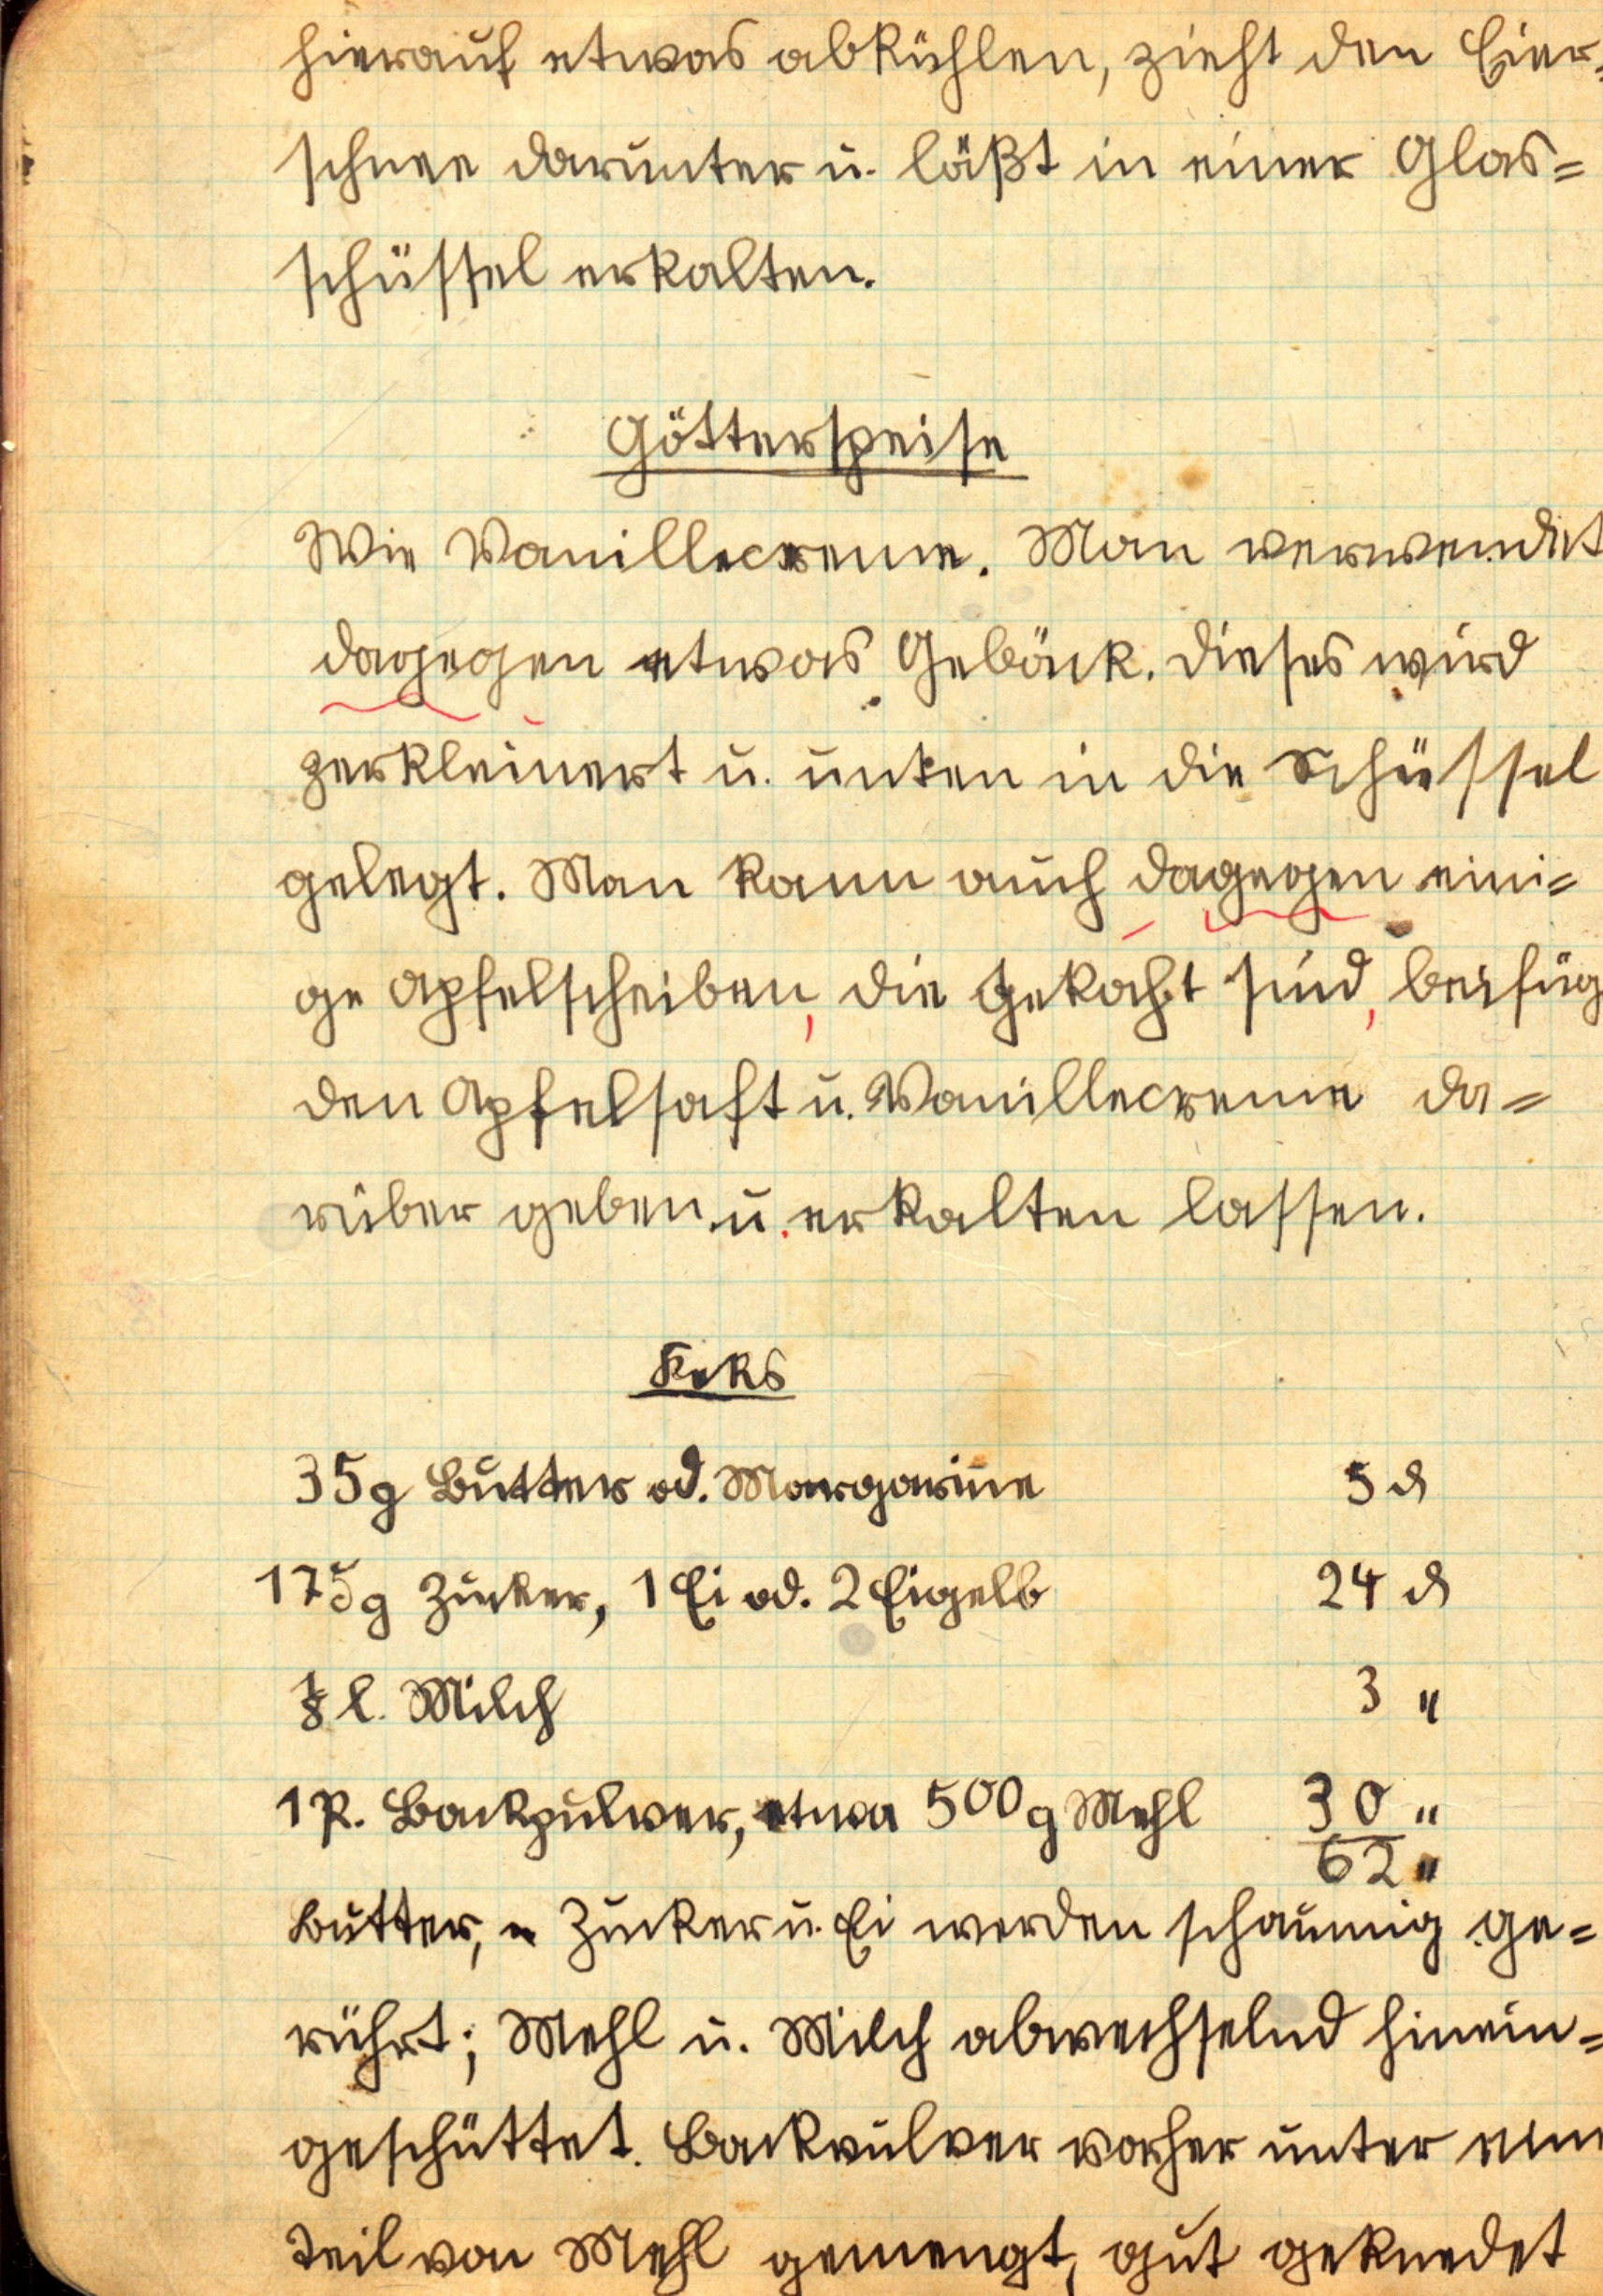 hierauf etwas abkühlen, zieht den Eier-
schnee darunter u. läßt in einer Glas=
schüssel erkalten.
Götterspeise
Wie Vanillecreme. Man verwendet
dagegen etwas Gebäck. Dieses wird
zerkleinert u. unten in die Schüssel
gelegt. Man kann auch dagegen eini=
ge Apfelscheiben, die gekocht sind, beifüg
den Apfelsaft u. Vanillecreme da=
rüber geben u. erkalten lassen.
Keks
35g Butter od. Margarine 5 ₰
175g Zucker, 1 Ei od. 2 Eigelb 24 ₰
⅛ l. Milch 3 "
1 P. Backpulver, etwa 500g Mehl 30 "
62 "
Butter, Zucker u. Ei werden schaumig ge=
rührt; Mehl u. Milch abwechselnd hinein=
geschüttet. Backpulver vorher unter eine
Teil von Mehl gemengt, gut geknedet